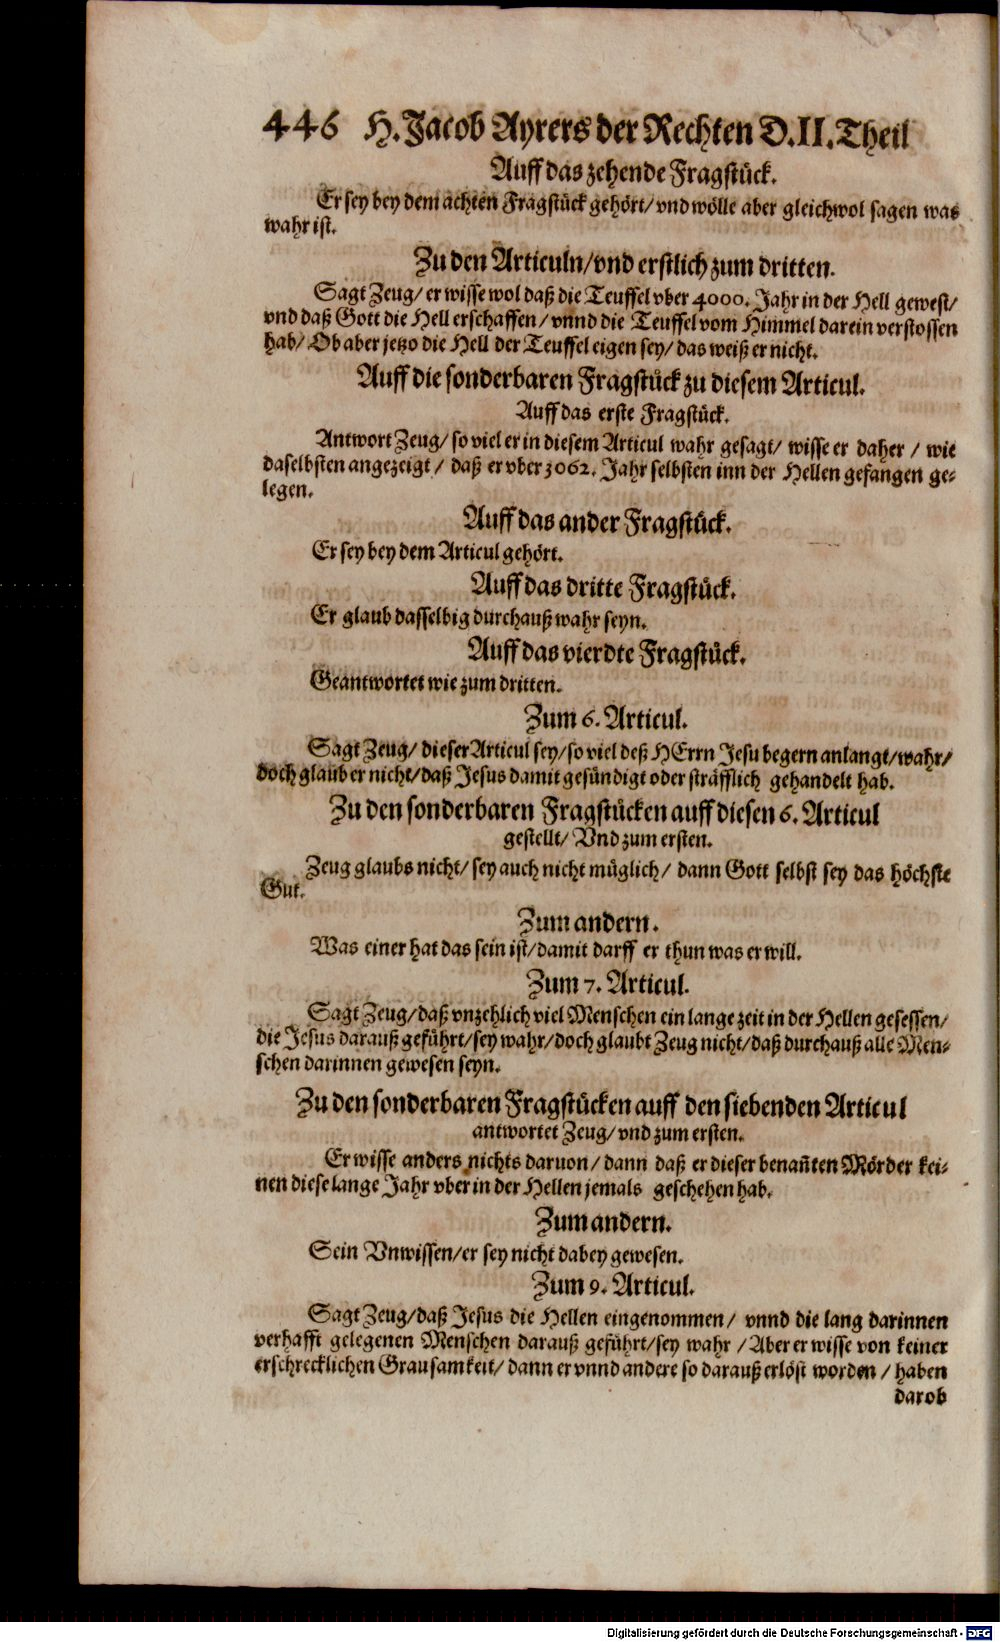 446 H. Jacob Ayrers der Rechten D. II. Theil
Auff das zehende Fragstück.
Er sey bey dem achten Fragstück gehört/ vnd wölle aber gleichwol sagen was
wahr ist.
Zu den Articuln/ vnd erstlich zum dritten.
Sagt Zeug/ er wisse wol daß die Teuffel vber 4000. Jahr in der Hell gewest/
vnd daß Gott die Hell erschaffen/ vnnd die Teuffel vom Himmel darein verstossen
hab/ Ob aber jetzo die Hell der Teuffel eigen sey/ das weiß er nicht.
Auff die sonderbaren Fragstück zu diesem Articul.
Auff das erste Fragstück.
Antwort Zeug/ so viel er in diesem Articul wahr gesagt/ wisse er daher / wie
daselbsten angezeigt / daß er vber 3062. Jahr selbsten inn der Hellen gefangen ge-
legen.
Auff das ander Fragstück.
Er sey bey dem Articul gehört.
Auff das dritte Fragstück.
Er glaub dasselbig durchauß wahr seyn.
Auff das vierdte Fragstück.
Geantwortet wie zum dritten.
Zum 6. Articul.
Sagt Zeug/ dieser Articul sey/ so viel deß HErrn Jesu begern anlangt/ wahr/
doch glaub er nicht/ daß Jesus damit gesündigt oder sträfflich gehandelt hab.
Zu den sonderbaren Fragstücken auff diesen 6. Articul
gestellt/ Vnd zum ersten.
Zeug glaubs nicht/ sey auch nicht müglich/ dann Gott selbst sey das höchste
Gut.
Zum andern.
Was einer hat das sein ist/ damit darff er thun was er will.
Zum 7. Articul.
Sagt Zeug/ daß vnzehlich viel Menschen ein lange zeit in der Hellen gesessen/
die Jesus darauß geführt/ sey wahr/ doch glaubt Zeug nicht/ daß durchauß alle Men-
schen darinnen gewesen seyn.
Zu den sonderbaren Fragstücken auff den siebenden Articul
antwortet Zeug/ vnd zum ersten.
Er wisse anders nichts daruon/ dann daß er dieser benan̄ten Mörder kei-
nen diese lange Jahr vber in der Hellen jemals geschehen hab.
Zum andern.
Sein Vnwissen/ er sey nicht dabey gewesen.
Zum 9. Articul.
Sagt Zeug/ daß Jesus die Hellen eingenommen/ vnnd die lang darinnen
verhafft gelegenen Menschen darauß geführt/ sey wahr / Aber er wisse von keiner
erschrecklichen Grausamkeit/ dann er vnnd andere so darauß erlöst worden / haben
darob
Digitalisierung gefördert durch die Deutsche Forschungsgemeinschaft - DFG